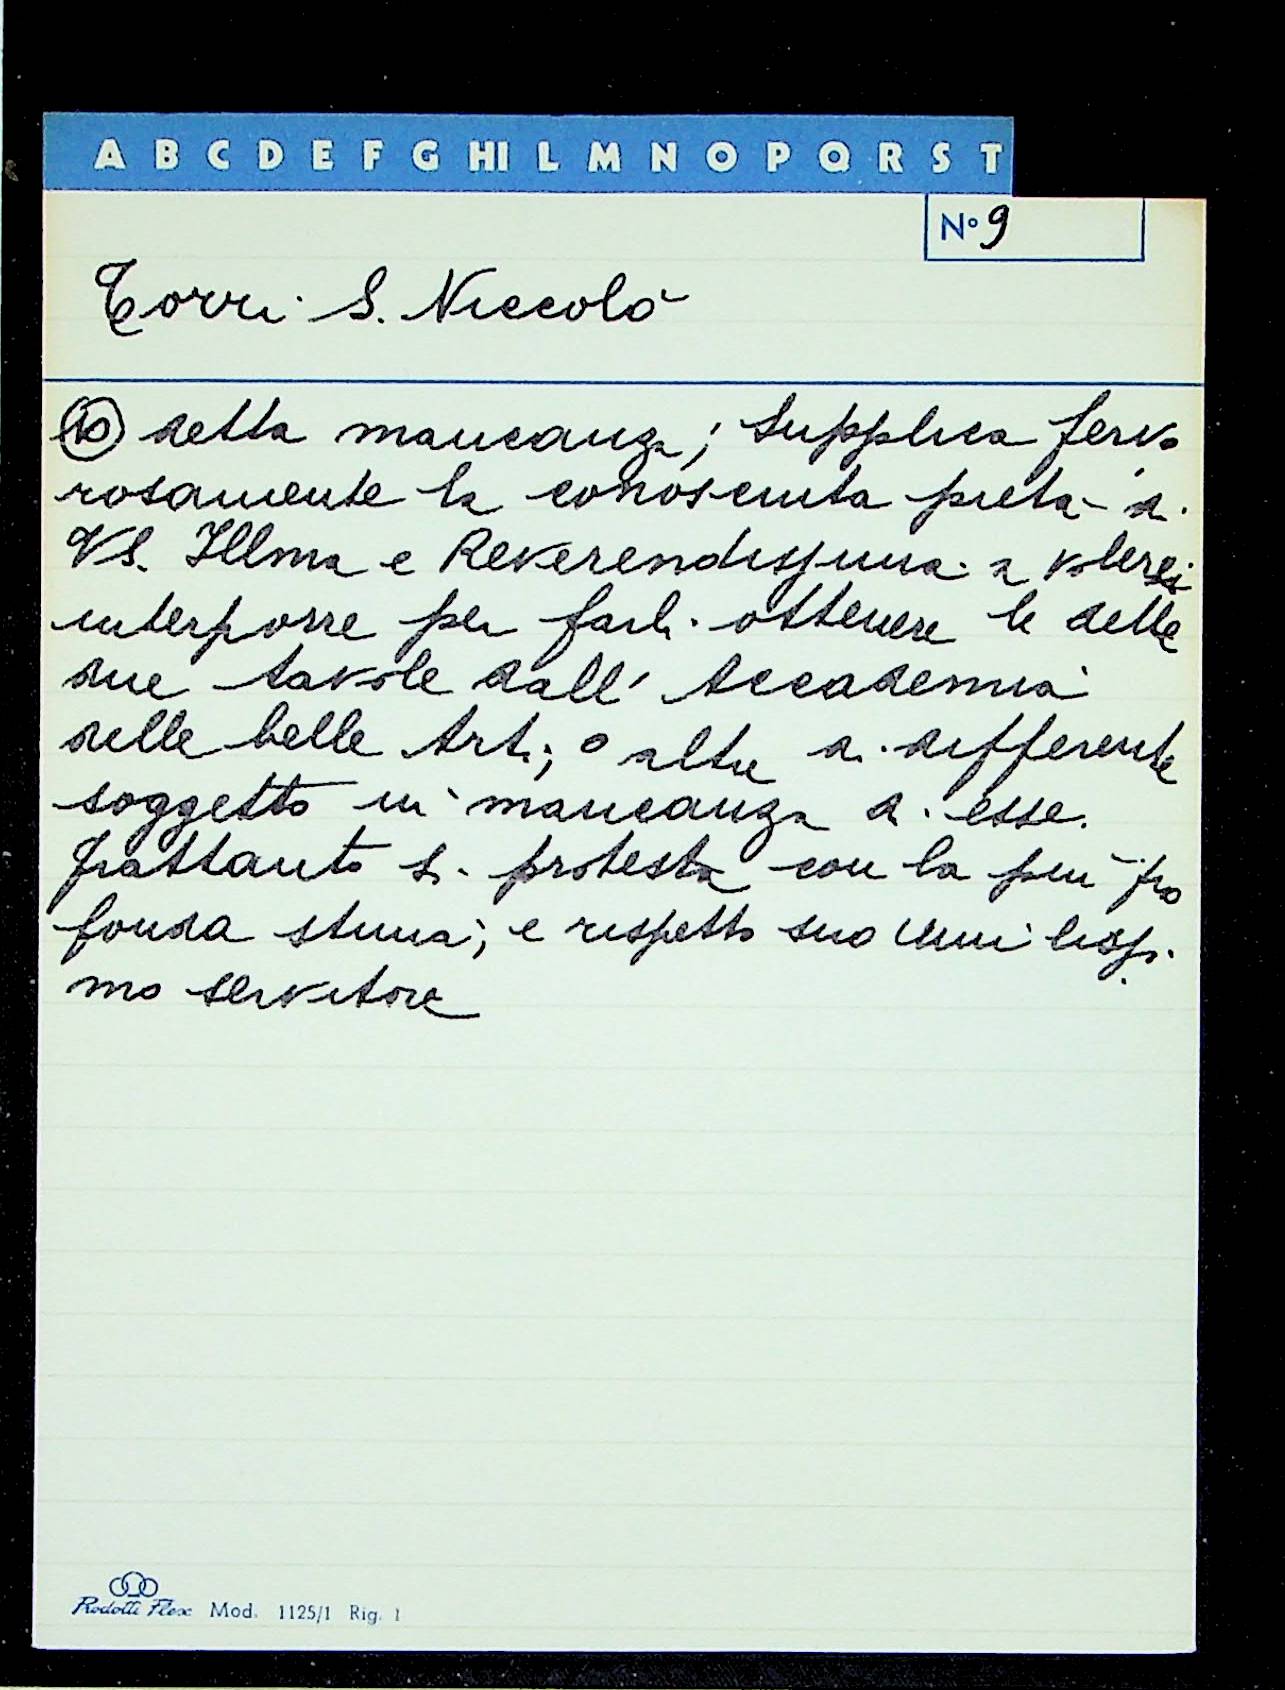 A B C D E F G HI L M N O P Q R S T
N° 9
Torri S. Niccolò
10 detta mancanza; supplica fervo
rosamente la conosciuta pietà di
VS. Illma e Reverendissima a volersi
interporre per farli ottenere le dette
due tavole dall' Accademia
delle belle Arti; o altre di differente
soggetto in mancanza di esse.
frattanto si protesta con la più pro
fonda stima; e rispetto suo Umilissi
mo servitore
Rodolti Flex Mod. 1125/1 Rig. 1